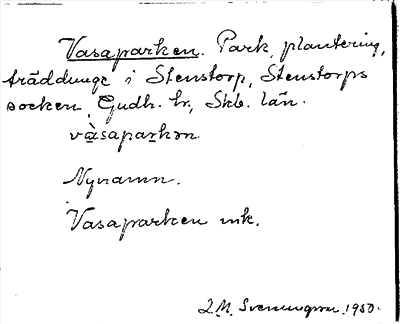 Vasaparken. Park, plantering,
träddunge i Stenstorp, Stenstorps
socken, Gudh. hr, Skb. län.
vàsaparkən.
Nynamn.
Vasaparken mk.
Sveningson 1950.